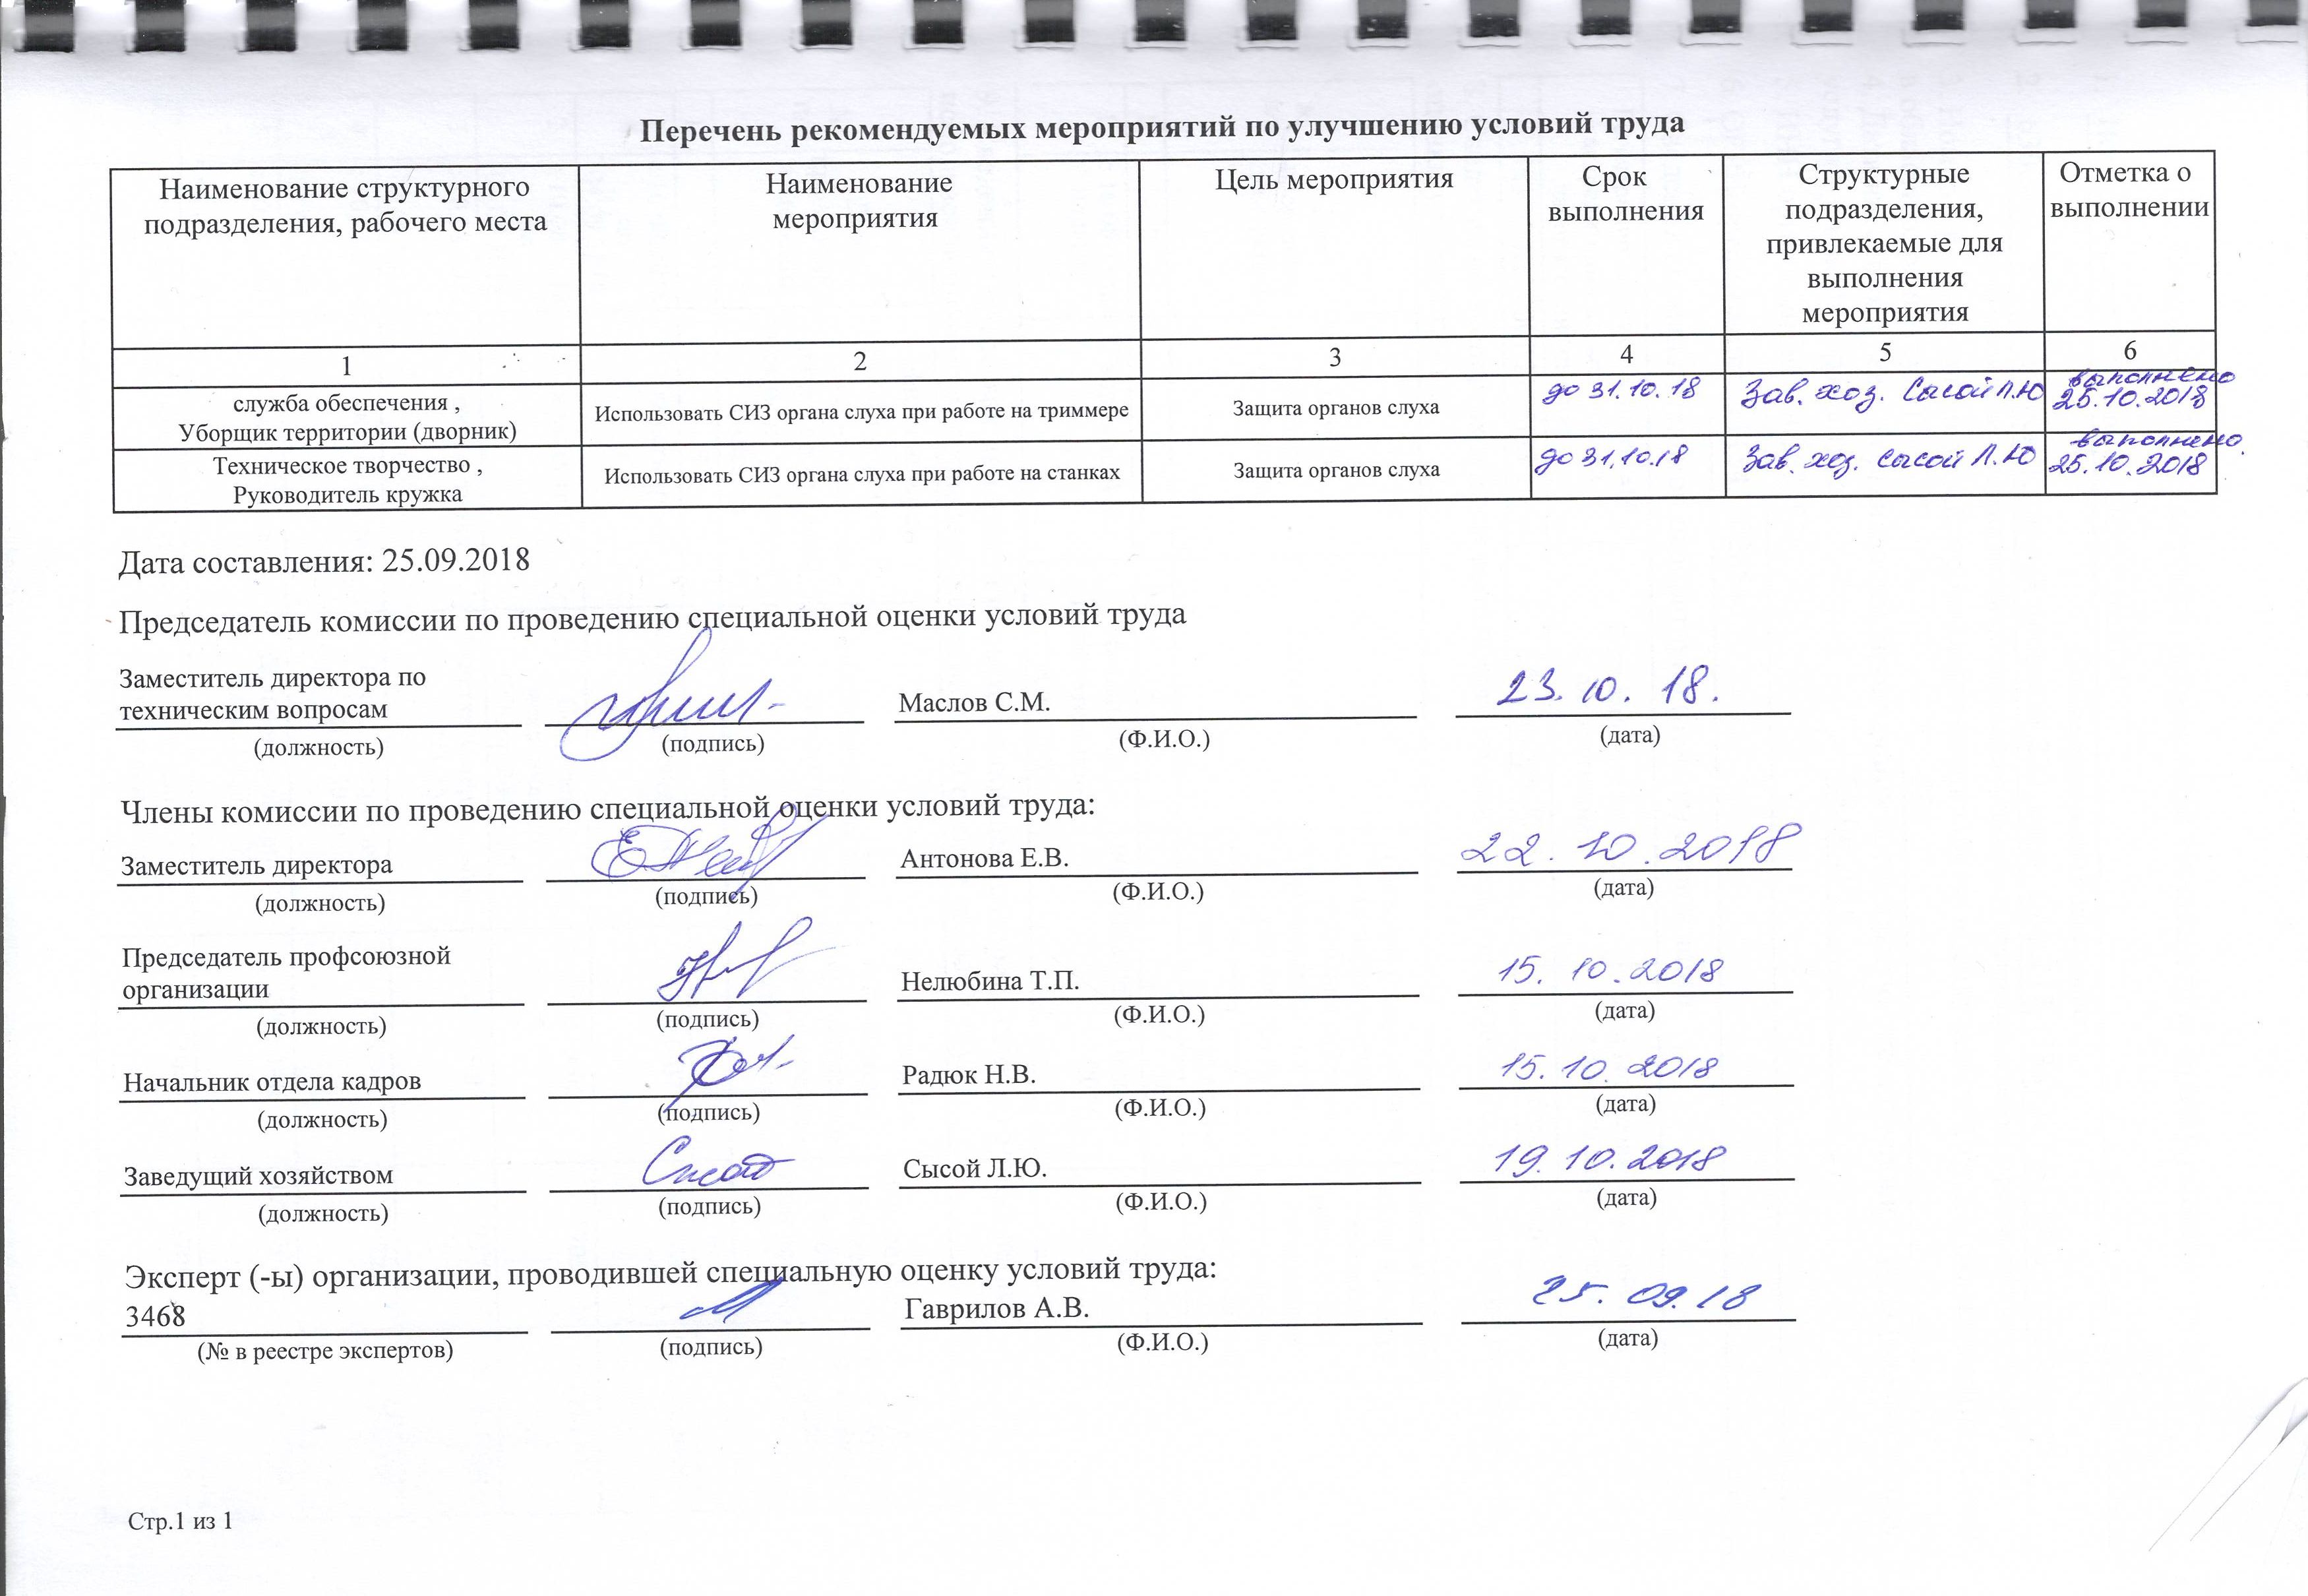 Перечень рекомендуемых мероприятий по улучшению условий труда
Наименование структурного
подразделения, рабочего места
Наименование
мероприятия
Цель мероприятия
Срок
выполнения
Структурные
подразделения,
привлекаемые для
выполнения
мероприятия
Отметка о
выполнении
1
2
3
4
5
6
служба обеспечения ,
Уборщик территории (дворник)
Использовать СИЗ органа слуха при работе на триммере
Защита органов слуха
до 31.10.18
Зав. хоз. Сысой Л.Ю
выполнено
25.10.2018
Техническое творчество ,
Руководитель кружка
Использовать СИЗ органа слуха при работе на станках
Защита органов слуха
до 31.10.18
Зав. хоз. Сысой Л.Ю
выполнено.
25.10.2018
Дата составления: 25.09.2018
Председатель комиссии по проведению специальной оценки условий труда
Заместитель директора по
техническим вопросам
Маслов С.М.
23.10.18.
(должность)
(подпись)
(Ф.И.О.)
(дата)
Члены комиссии по проведению специальной оценки условий труда:
Заместитель директора
Антонова Е.В.
22.10.2018
(должность)
(подпись)
(Ф.И.О.)
(дата)
Председатель профсоюзной
организации
Нелюбина Т.П.
15.10.2018
(должность)
(подпись)
(Ф.И.О.)
(дата)
Начальник отдела кадров
Радюк Н.В.
15.10.2018
(должность)
(подпись)
(Ф.И.О.)
(дата)
Заведущий хозяйством
Сысой
Сысой Л.Ю.
19.10.2018
(должность)
(подпись)
(Ф.И.О.)
(дата)
Эксперт (-ы) организации, проводившей специальную оценку условий труда:
3468
Гаврилов А.В.
25.09.18
(№ в реестре экспертов)
(подпись)
(Ф.И.О.)
(дата)
Стр.1 из 1